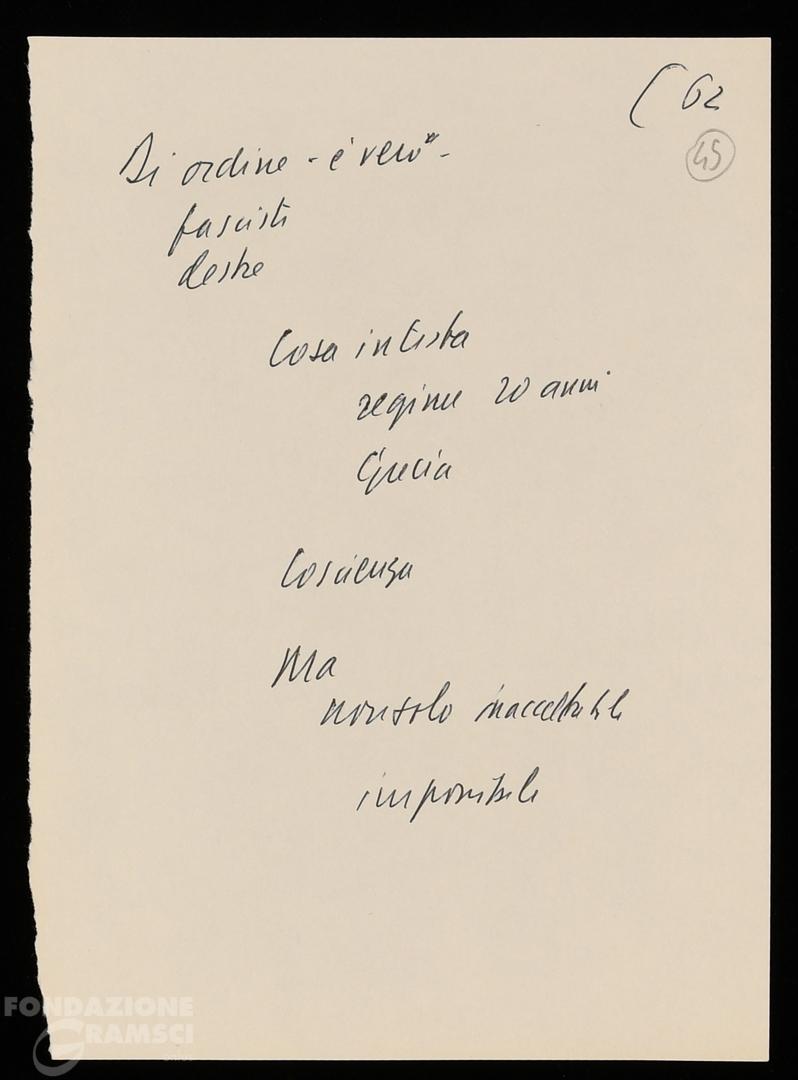 ( 62
45
Di ordine - è vero" -
fascisti
destre
Cosa in testa
regime 20 anni
Grecia
Coscienza
Ma
non solo inaccettabile
impossibile
FONDAZIONE
GRAMSCI